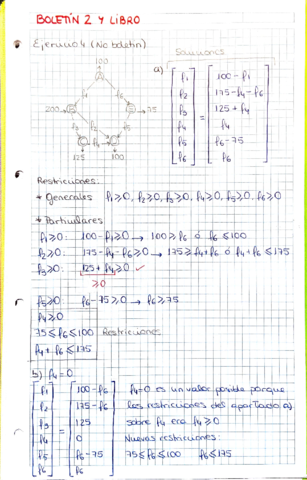 BOLETÍN 2 Y LIBRO
Ejercicio 4 (No boletín)
Soluciones
100
a) [f1 f2 f3 f4 f5 f6] = [100 - f1 175 - f4 - f6 125 + f4 f4 f6 - 75 f6]
200 75
125 100
Restricciones:
* Generales f1≥0, f2≥0, f3≥0, f4≥0, f5≥0, f6≥0
* Particulares
f1≥0: 100-f1≥0 → 100≥f6 ó f6≤100
f2≥0: 175-f4-f6≥0 → 175≥f4+f6 ó f4+f6≤175
f3≥0: 125+f4≥0 ✓
≥0
f5≥0: f6-75≥0 → f6≥75
f4≥0
75≤f6≤100 Restricciones
f4+f6≤175
b) f4=0
[f1 f2 f3 f4 f5 f6] = [100-f6 175-f6 125 0 f6-75 f6]
f4=0 es un valor posible porque
las restricciones del apartado a)
sobre f4 era f4≥0
Nuevas restricciones:
75≤f6≤100 f6≤175